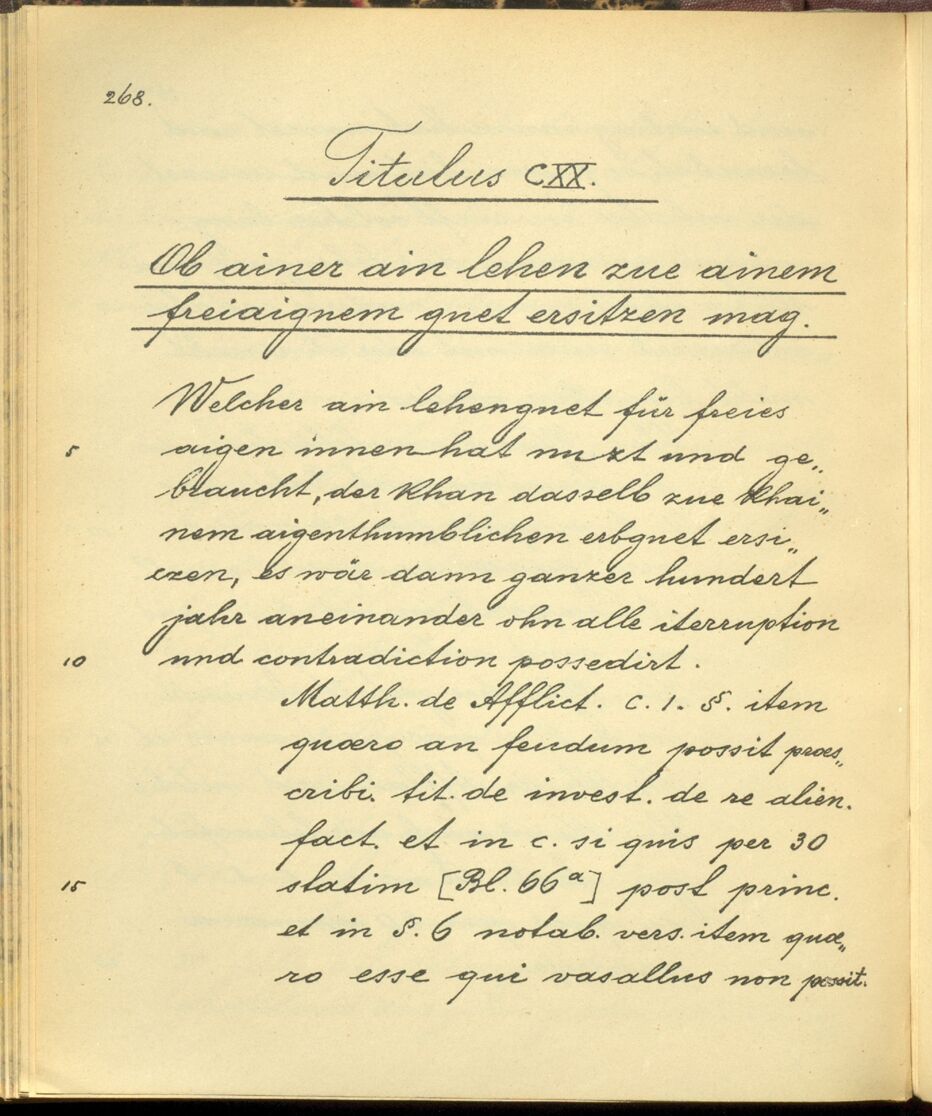 268.
Titulus CXX.
Ob ainer ain lehen zue ainem
freiaignem guet ersitzen mag.
Welcher ain lehenguet für freies
5 aigen innen hat nuzt und ge„
braucht, der khan dasselb zue khai„
nem aigenthumblichen erbguet ersi„
czen, es wär dann ganzer hundert
jahr aneinander ohn alle iterruption
10 und contradiction possedirt.
Matth. de Afflict. c. 1. §. item
quæro an feudum possit præs„
cribi. tit. de invest. de re alien.
fact. et in c. si quis per 30
15 statim [Bl. 66a] post princ.
et in §. 6 notab. vers. item quæ„
ro esse qui vasallus non possit.